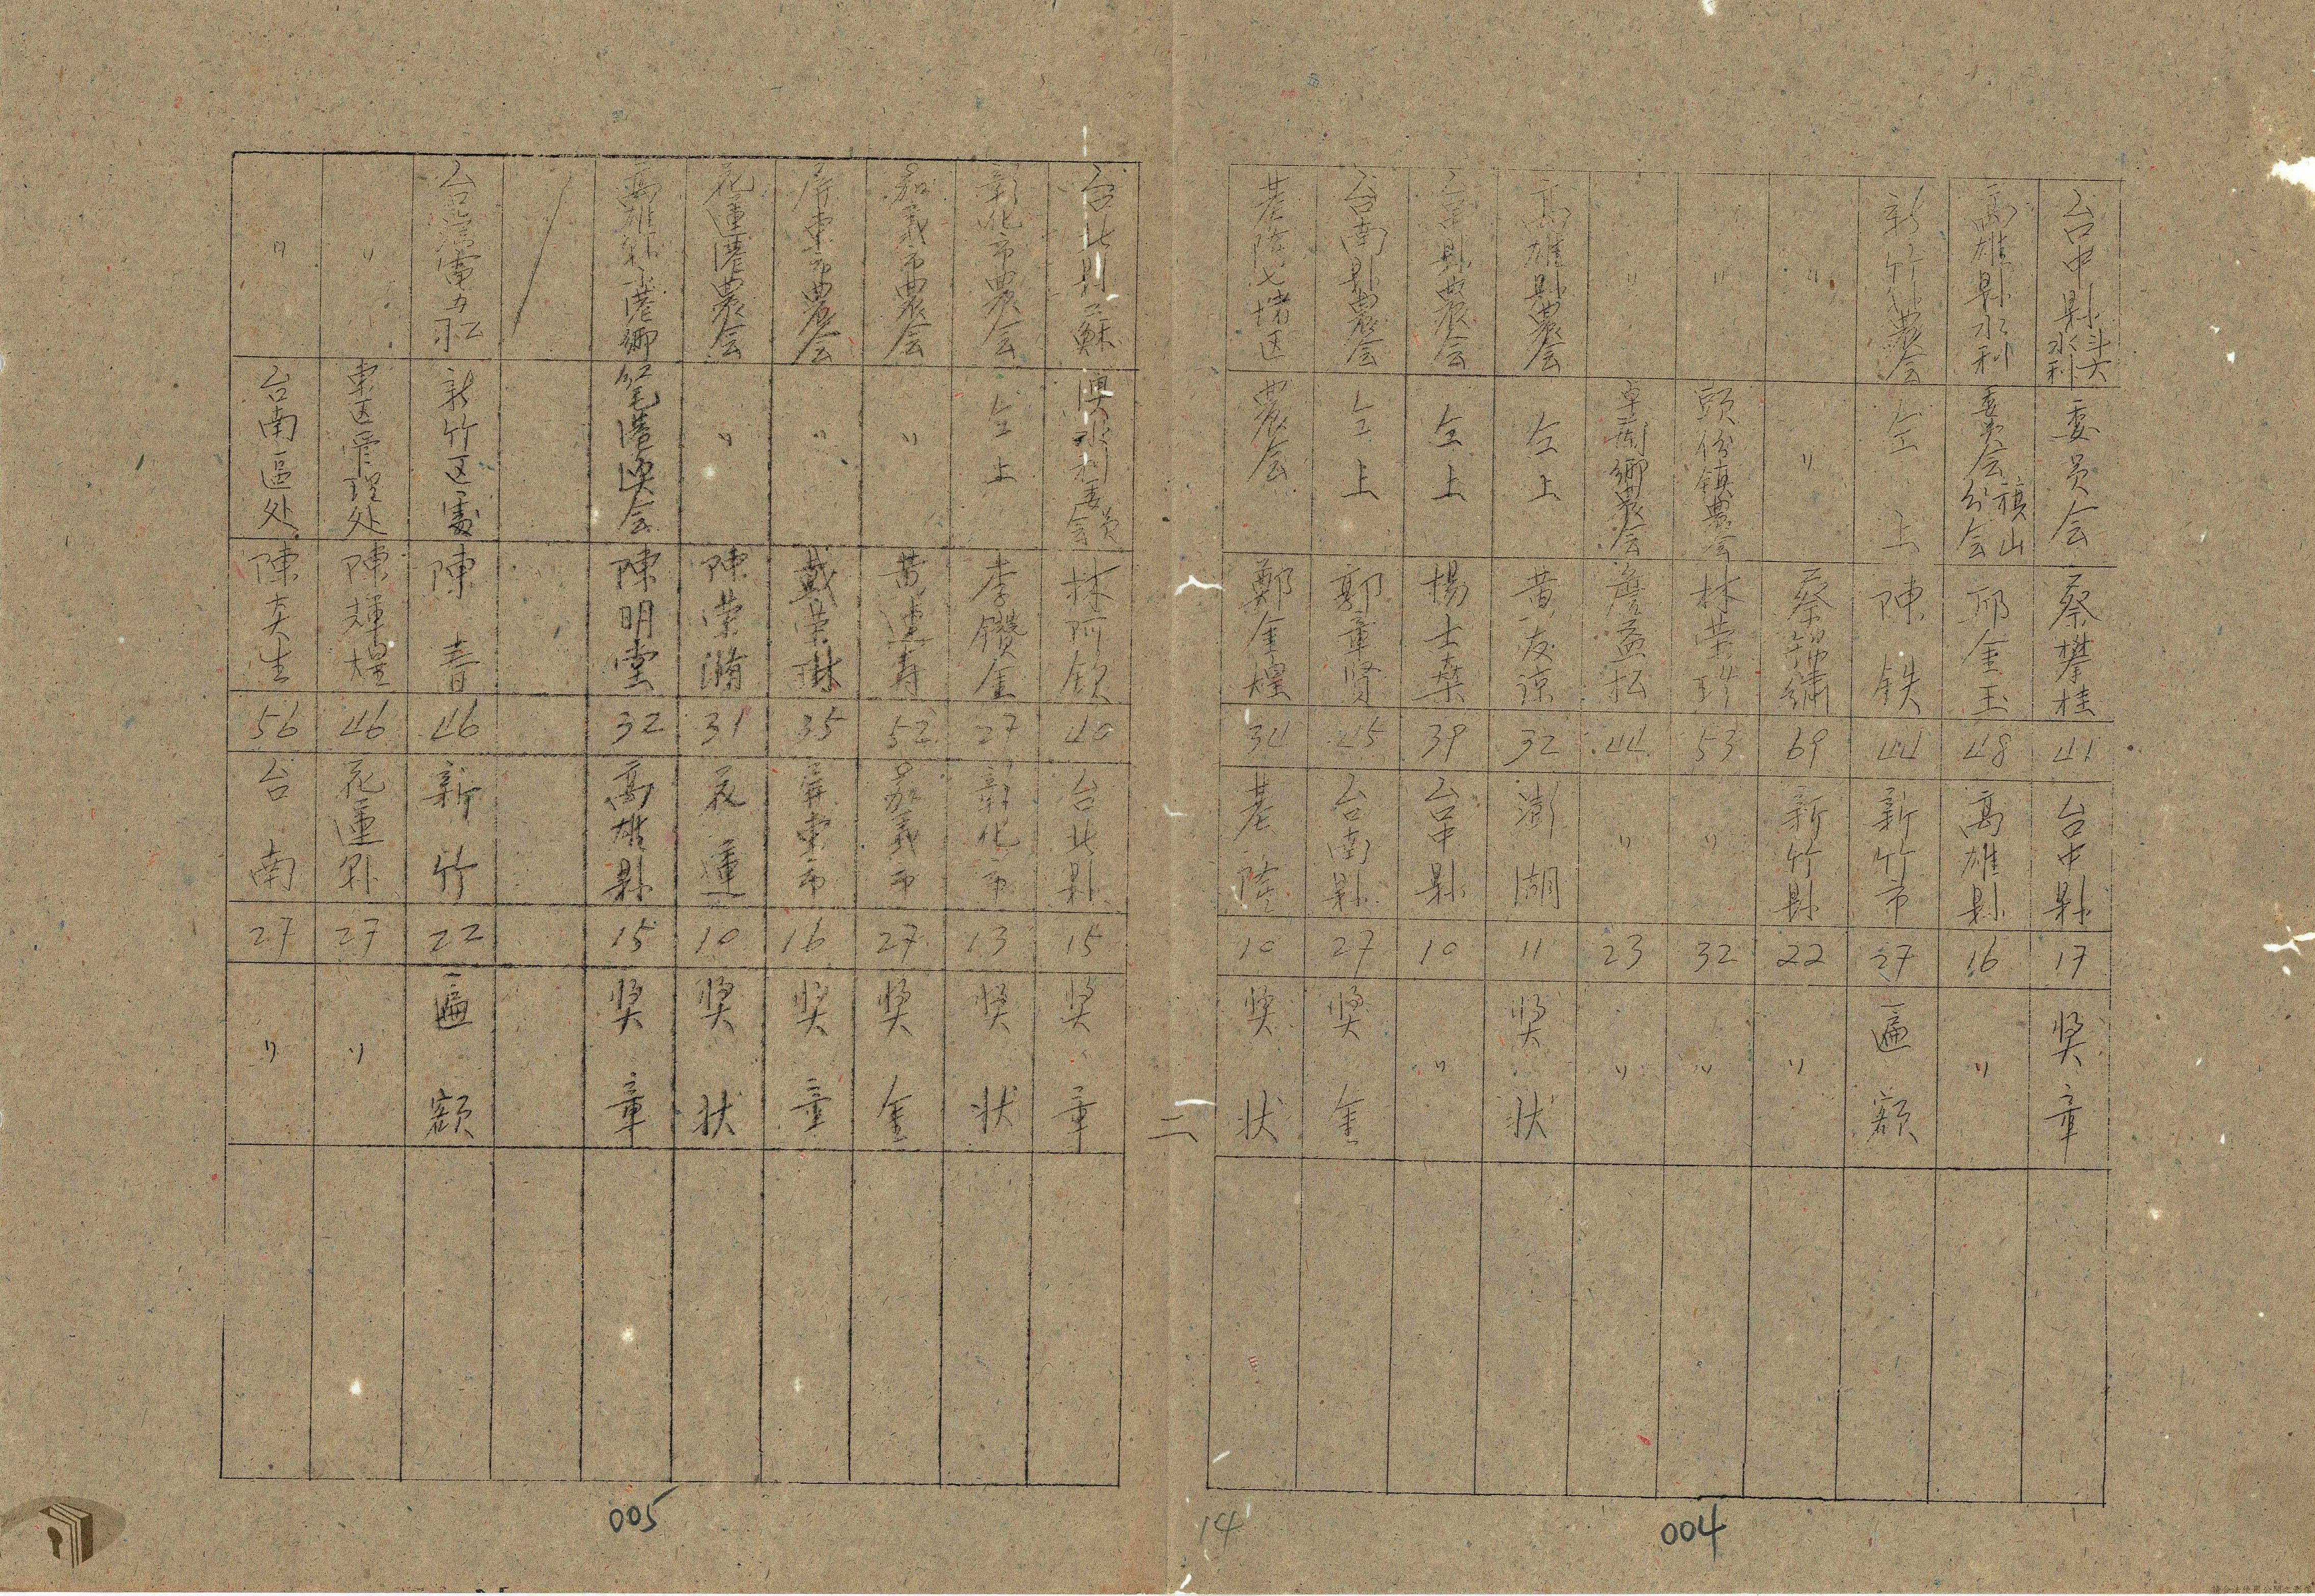 台中縣斗六水利 委員会 蔡攀桂 41 台中縣 17 奨章
高雄縣水利 委員会旗山分会 邱金玉 48 高雄縣 16 〃
新竹農会 仝上 陳鉄 44 新竹市 27 匾額
〃 〃 蔡錦繡 69 新竹縣 22 〃
〃 頭份鎮農会 林荣 53 〃 32 〃
〃 卓蘭鄉農会 詹益松 44 〃 23 〃
高雄縣農会 仝上 黄友諒 32 澎湖 11 奨状
台中縣農会 仝上 楊士 39 台中縣 10 〃
台南縣農会 仝上 郭章賢 45 台南縣 27 奨金
基隆七堵区 農会 鄭金煌 34 基隆 10 奨状
14
004
二
台北縣蘇 澳水利委員会 林阿欽 40 台北縣 15 奨章
彰化市農会 仝上 李鑽金 27 彰化市 13 奨状
嘉義市農会 〃 黄連寿 52 嘉義市 27 奨金
屏東市農会 〃 戴荣琳 35 屏東市 16 奨章
花蓮港農会 〃 陳荣 31 花蓮 10 奨状
高雄縣港鄉 港漁会 陳明堂 32 高雄縣 15 奨章
台湾電力公司 新竹区處 陳春 46 新竹 22 匾額
〃 東区管理处 陳輝煌 46 花蓮縣 27 〃
〃 台南區处 陳夭生 56 台南 27 〃
005